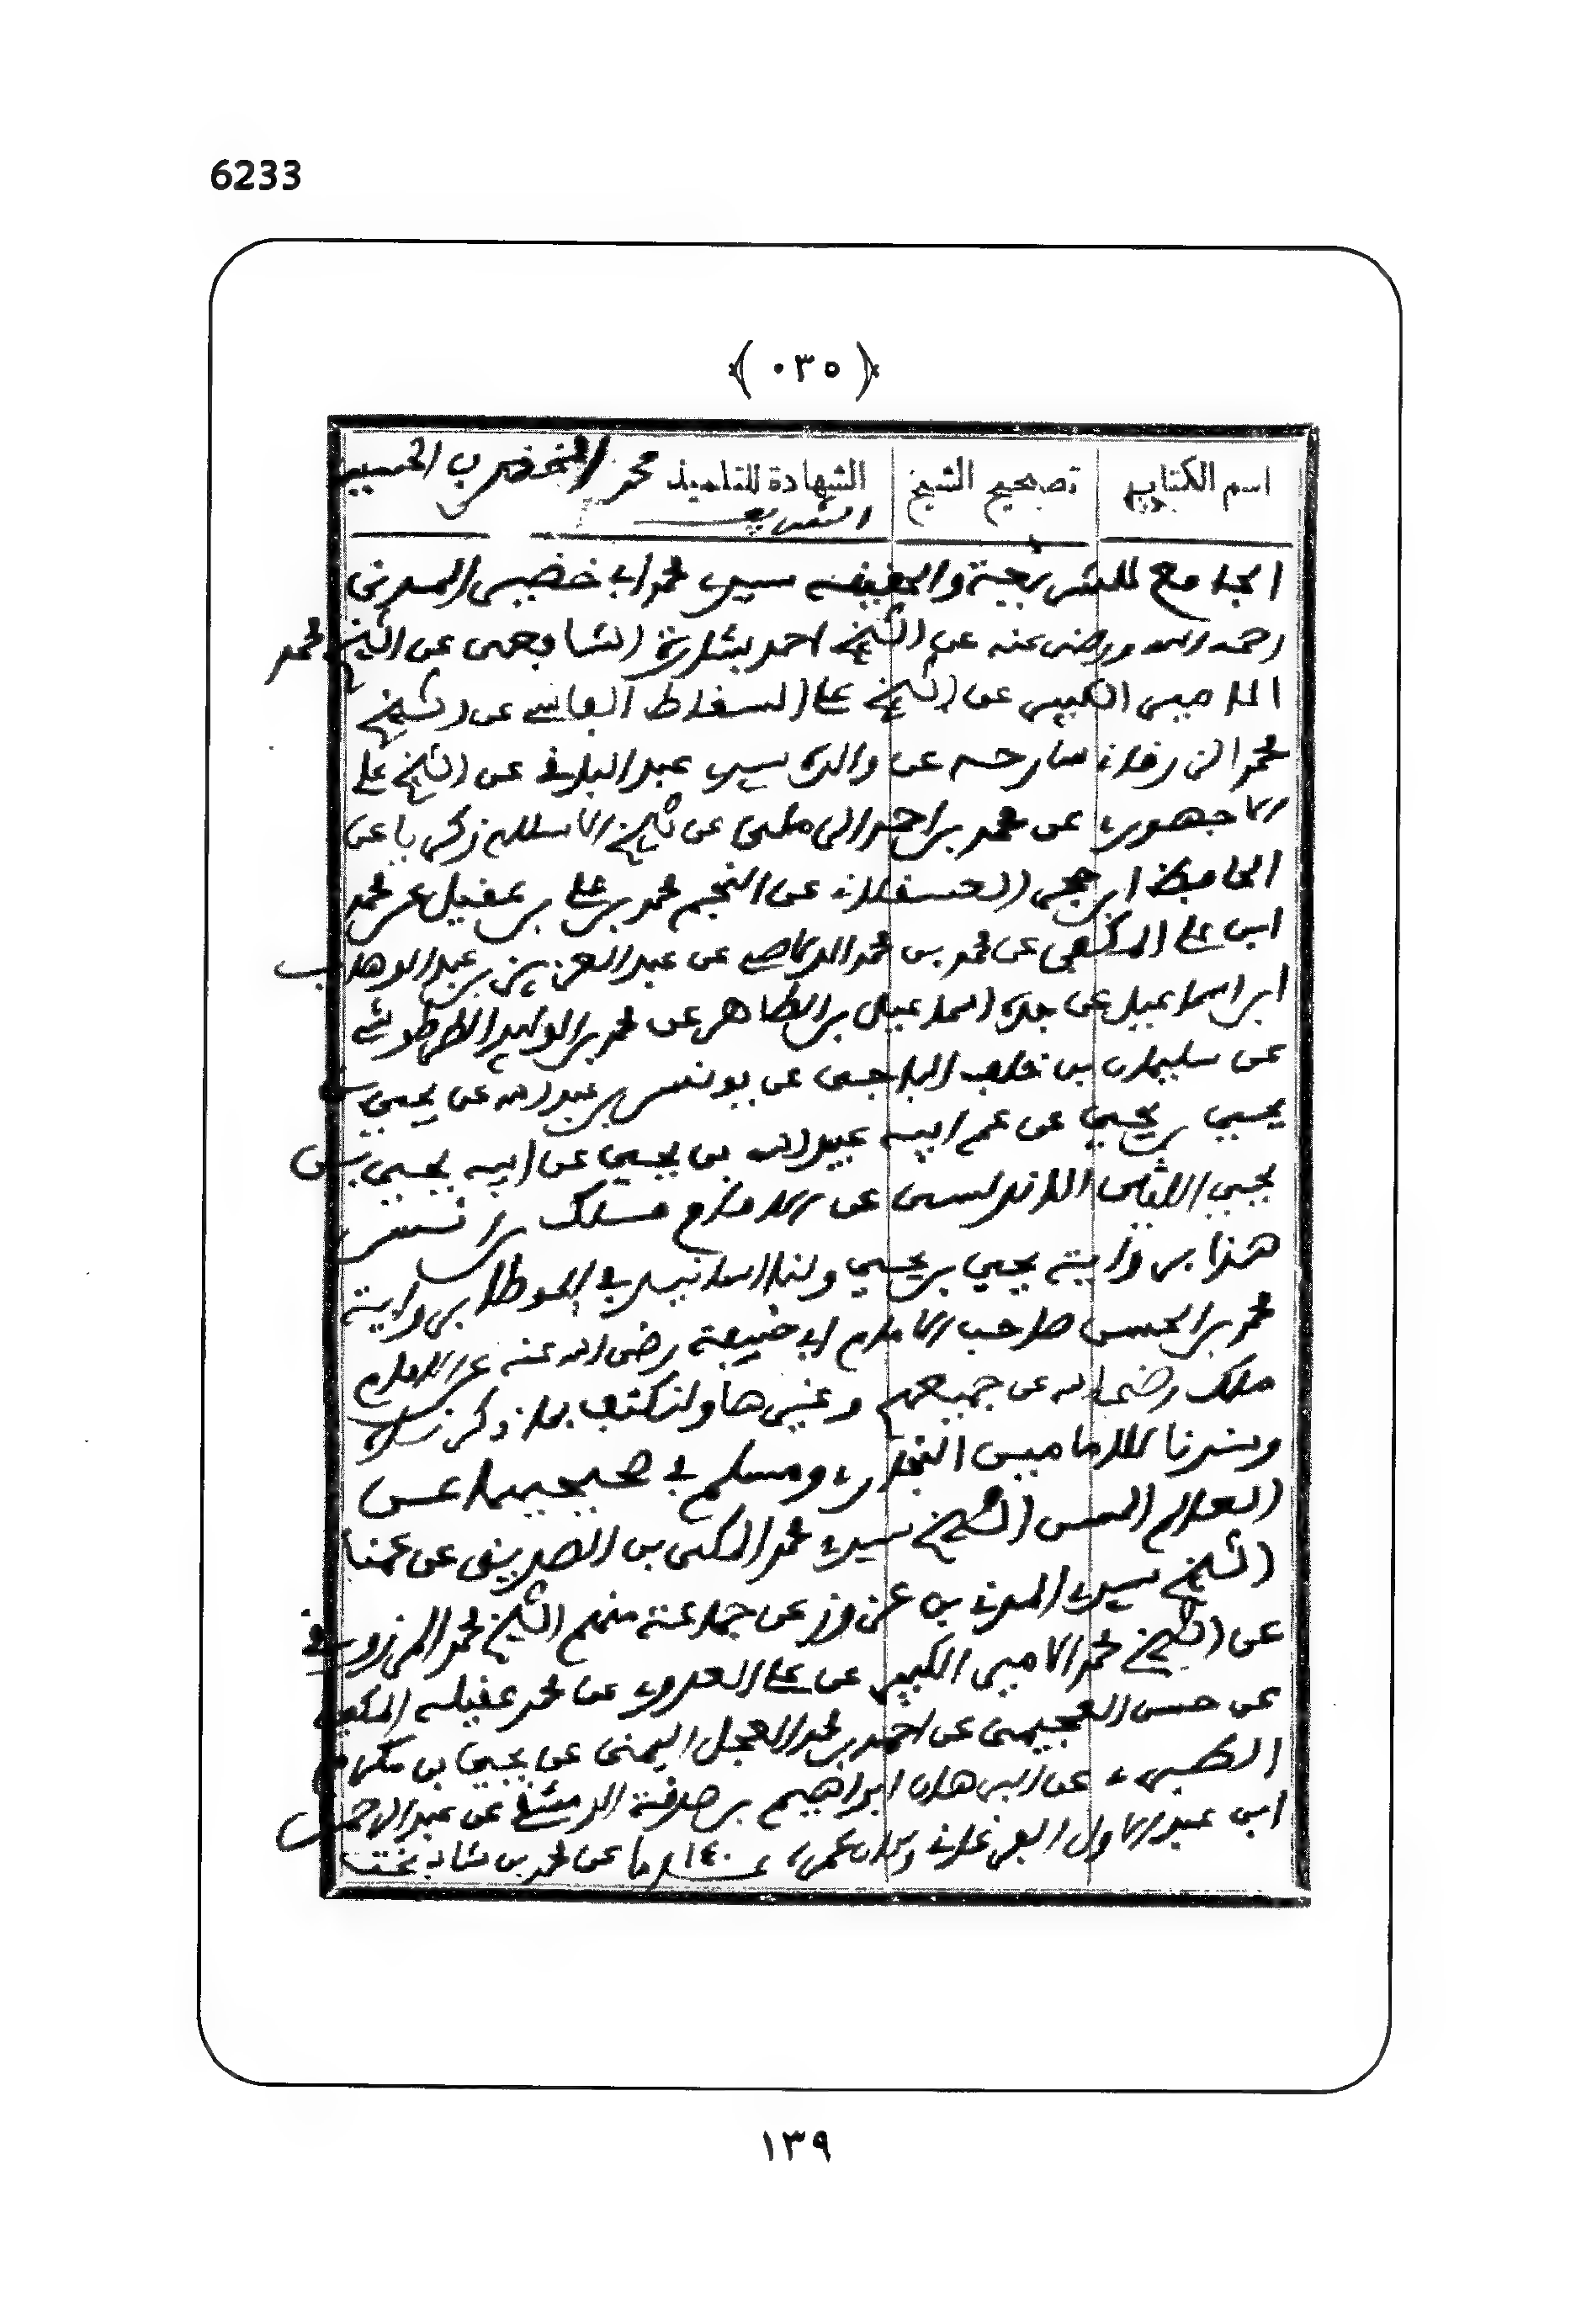 6233
﴿ ٠٣٥ ﴾
اسم الكتاب تصحيح الشيخ الشهادة للتلميذ محمد الخضر بن الحسين
الشريف
الجامع للشريعة والحقيقة سيدي محمد ابي خضير المدني
رحمه الله ورضي عنه عن الشيخ احمد بشارة الشافعي عن الشيخ محمد
الامير الكبير عن الشيخ علي السقاط الفاسي عن الشيخ
محمد الزرقاني شارحه عن والده سيدي عبد الباقي عن الشيخ علي
الاجهوري عن محمد بن احمد الرملي عن شيخ الاسلام زكريا عن
الحافظ ابن حجر العسقلاني عن النجم محمد بن علي بن عقيل عن محمد
ابن علي المكفي عن محمد بن محمد الدلاصي عن عبد العزيز بن عبد الوهاب
ابن اسماعيل عن جده اسماعيل بن الطاهر عن محمد بن الوليد الطرطوشي
عن سليمان بن خلف الباجي عن يونس بن عبد الله عن يحيى بن
يحيى بن يحيى عن عم ابيه عبيد الله بن يحيى عن ابيه يحيى بن
يحيى الليثي الاندلسي عن الامام مالك بن انس
هذا برواية يحيى بن يحيى ولنا اسانيد في الموطا برواية
محمد بن الحسن صاحب الامام ابي حنيفة رضي الله عنه عن الامام
ملك رضي الله عن جميعهم وغيرها ولنكتف بما ذكرناه
وسندنا للامامين البخاري ومسلم في صحيحيهما عن
العالم المسن الشيخ سيدي محمد المكي بن الصديق عن عمنا
الشيخ سيدي المدني بن عزوز عن جماعة منهم الشيخ محمد المرزوقي
عن الشيخ محمد الامير الكبير عن علي العدوي عن محمد عقيلة المكي
عن حسن العجيمي عن احمد بن محمد العجل اليمني عن يحيى بن مكرم
الطبري عن البرهان ابراهيم بن صدقة الدمشقي عن عبد الرحمن
ابن عبد الاول الفرغاني وكان عمره ١٤٠ عاما عن محمد بن شاذ بخت
١٣٩